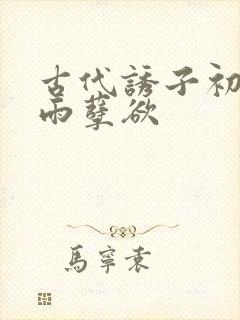 古代誘子初
雨孽欲
馬寧袁